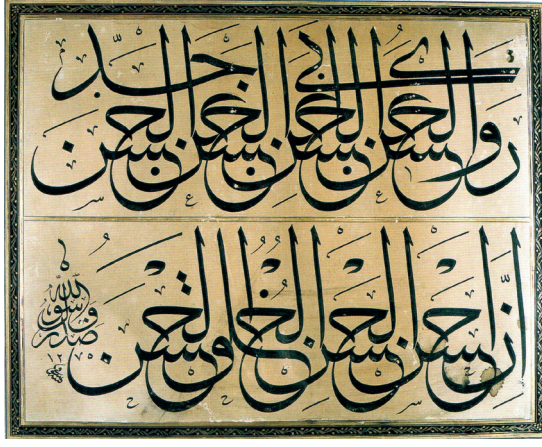 روى الحسن الحسن ابى الحسن جد الحسن
ان احسن الحسن الخلق الحسن
صدق رسول الله